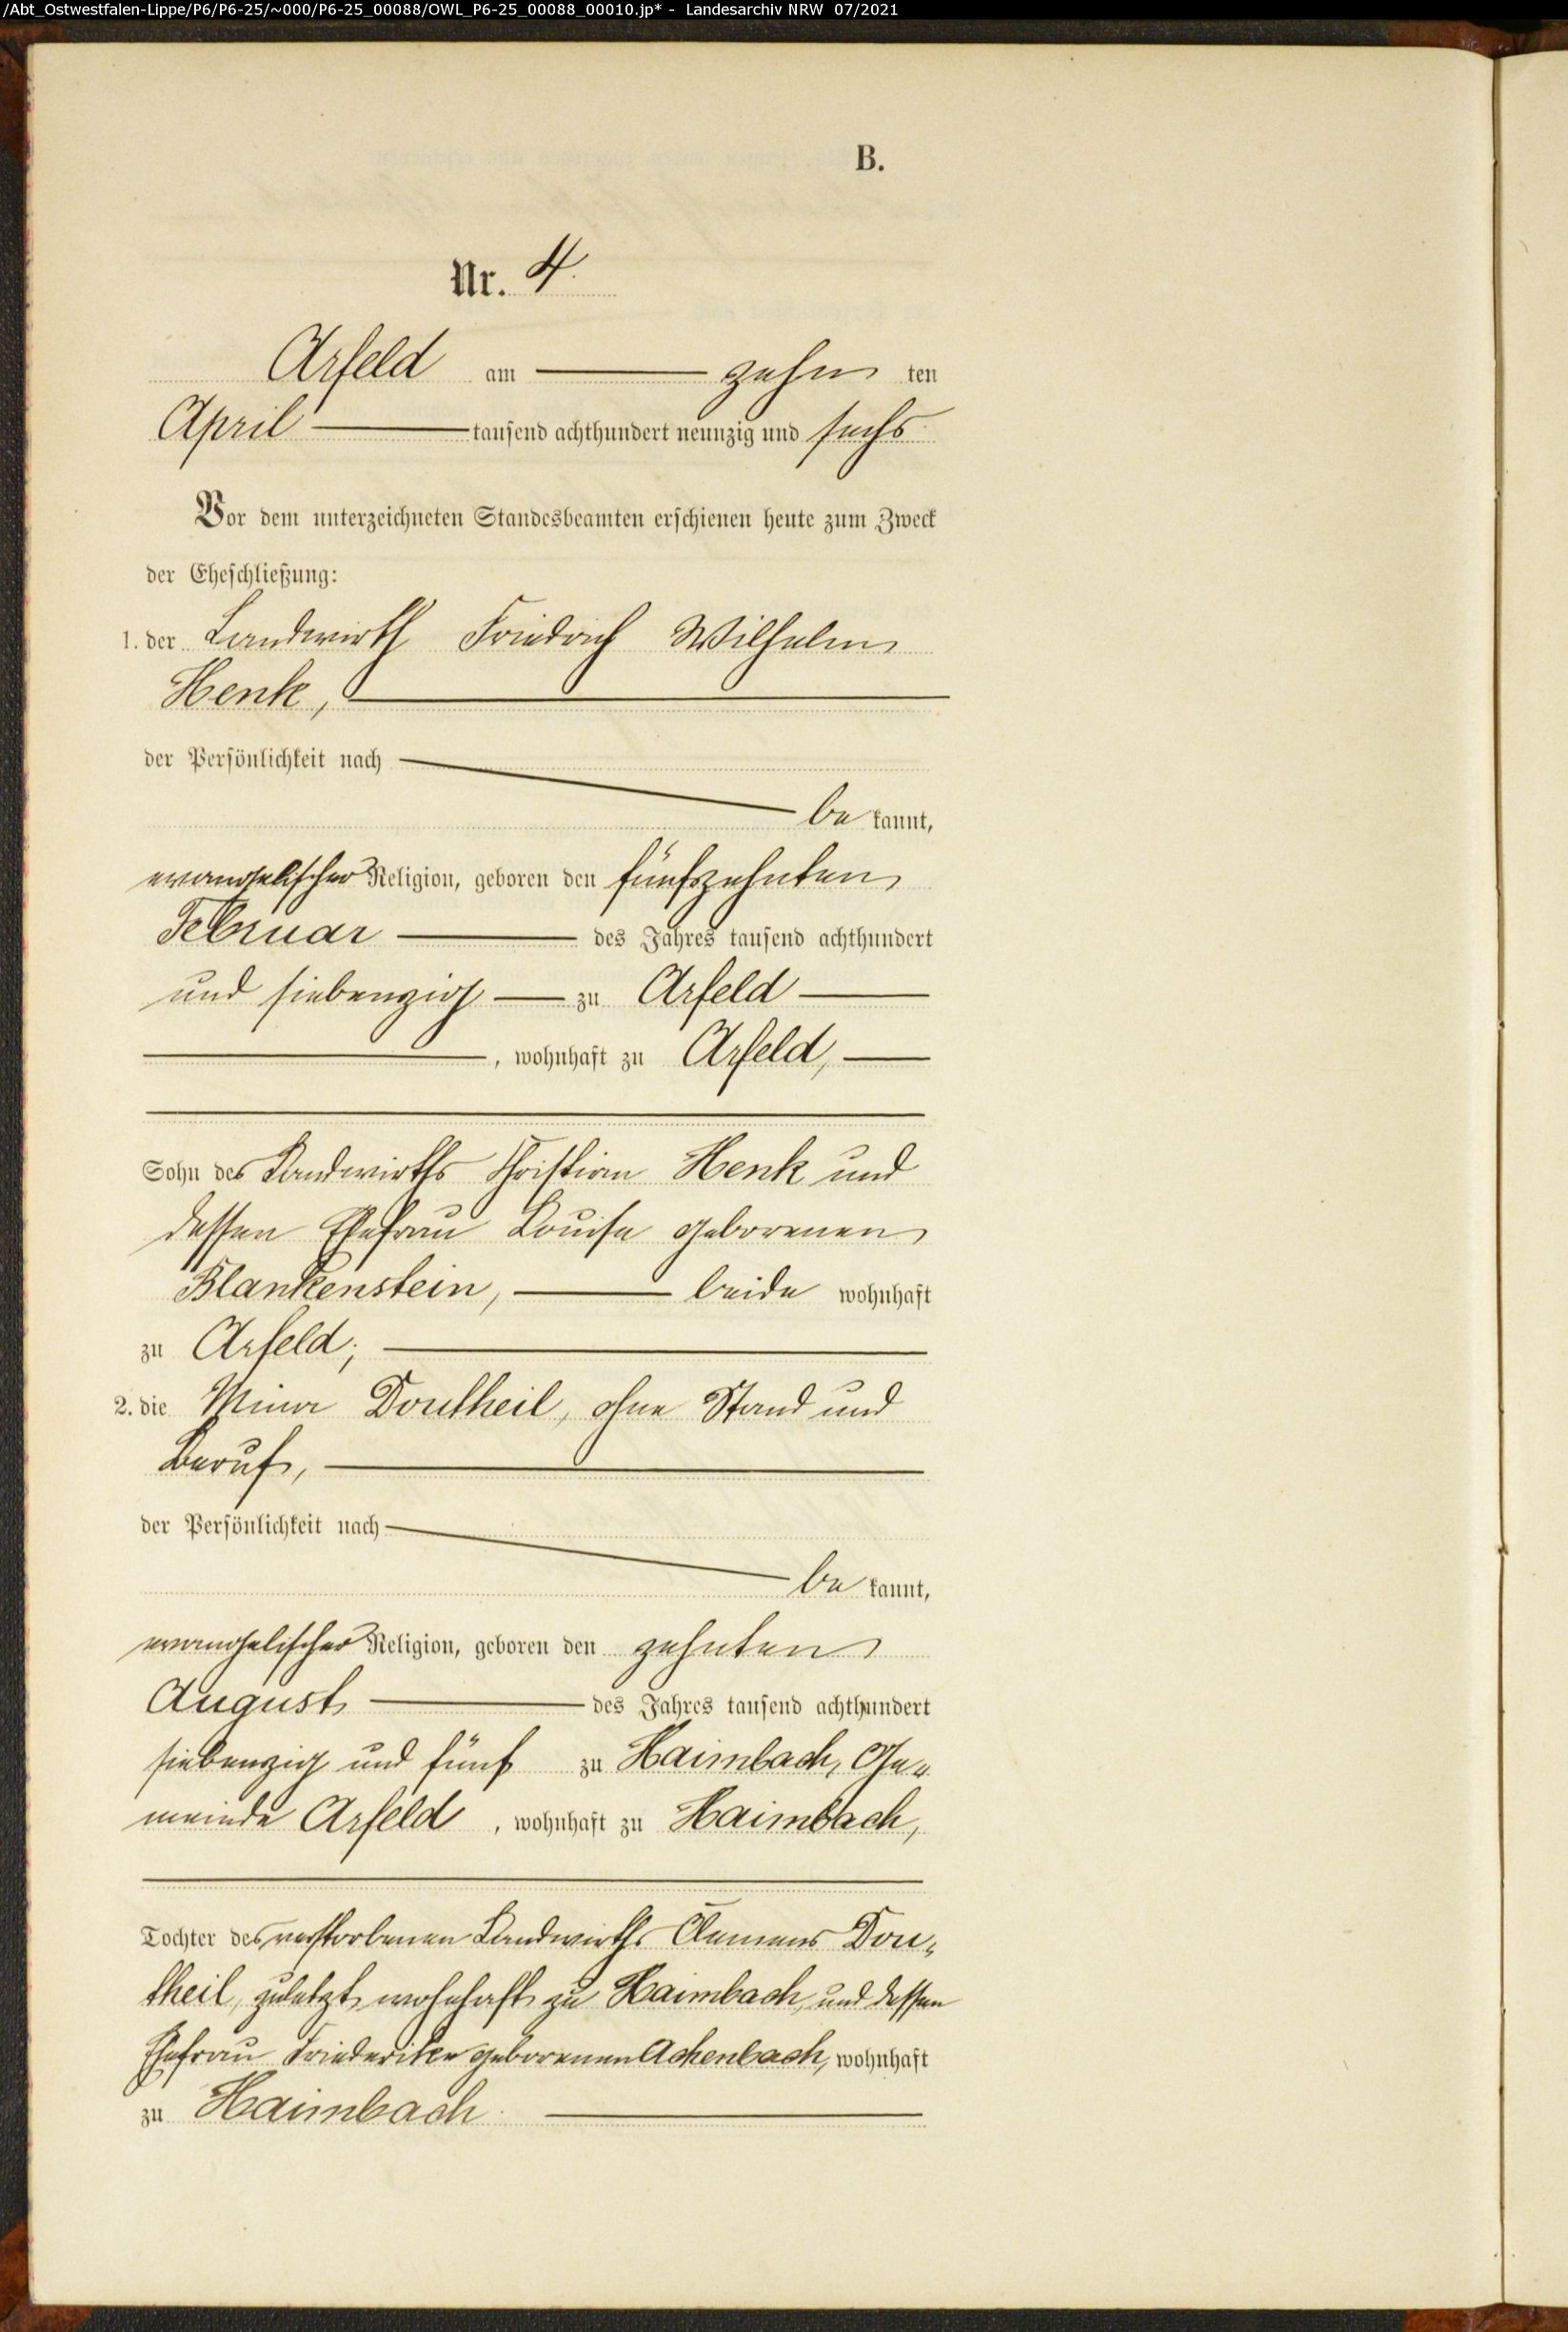 /Abt_Ostwestfalen-Lippe/P6/P6-25/~000/P6-25_00088/OWL_P6-25_00088_00010.jp* - Landesarchiv NRW 07/2021
B.
Nr. 4.
Arfeld am zehn ten
April tausend achthundert neunzig und sechs
Vor dem unterzeichneten Standesbeamten erschienen heute zum Zweck
der Eheschließung:
1. der Landwirth Friedrich Wilhelm
Henk,
der Persönlichkeit nach
be kannt,
evangelischer Religion, geboren den fünfzehnten
Februar des Jahres tausend achthundert
und siebenzig zu Arfeld
, wohnhaft zu Arfeld,
Sohn des Landwirths Christian Henk und
dessen Ehefrau Louise geborenen
Blankenstein, beide wohnhaft
zu Arfeld;
2. die Mina Doutheil, ohne Stand und
Beruf,
der Persönlichkeit nach
be kannt,
evangelischer Religion, geboren den zehnten
August des Jahres tausend achthundert
siebenzig und fünf zu Haimbach, Ge„
meinde Arfeld, wohnhaft zu Haimbach,
Tochter des verstorbenen Landwirths Clemens Dou„
theil, zuletzt wohnhaft zu Haimbach, und dessen
Ehefrau Friederike geborenen Achenbach, wohnhaft
zu Haimbach.